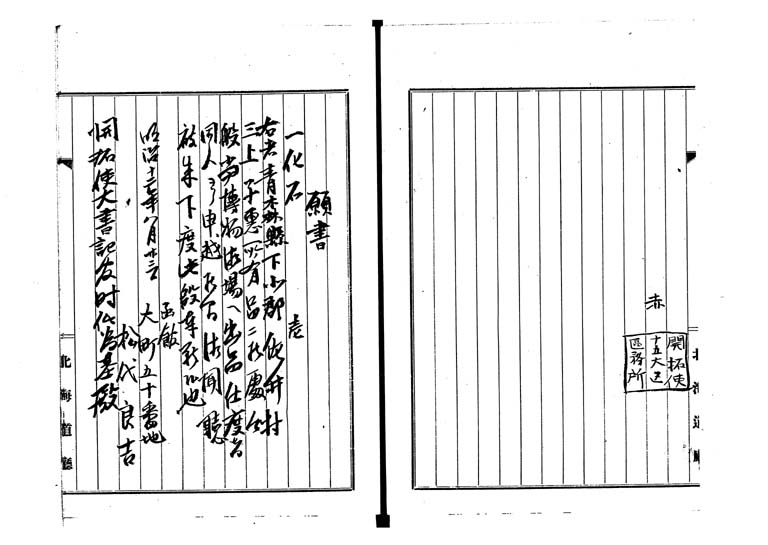 赤
開拓使
十五大区
区務所
北海道庁
願書
一化石 壱
右者青森縣下北郡佐井村
三上子惠所有品ニ候處今
般當博物場ヘ出品仕度旨
同人ヨリ申越候間御聞聽
被成下度此段奉願候也
函館
明治十二年八月廿三日 大町五十番地
松代良吉
開拓使大書記官時任為基殿
北海道廳